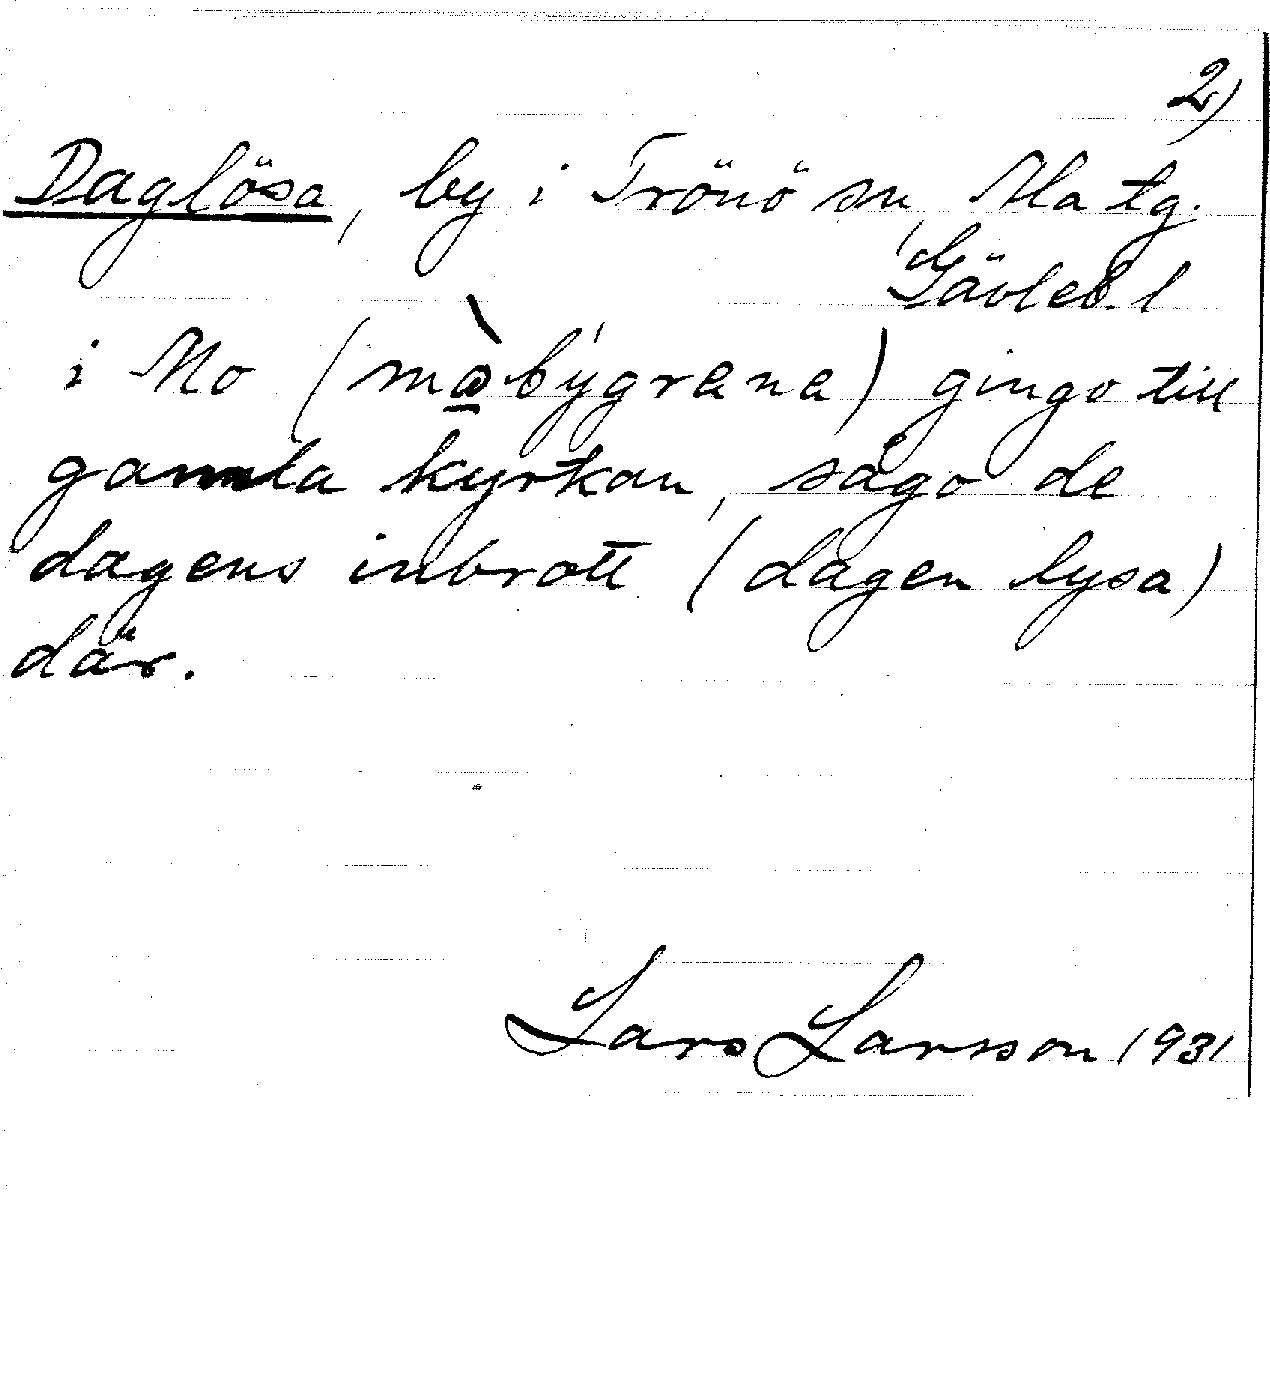 2)
Daglösa, by i Trönö sn, Ala tg.
Gävleb. l
i Mo (mòbýgrana) gingo till
gamla kyrkan, sågo de
dagens inbrott (dagen lysa)
där.
Lars Larsson 1931